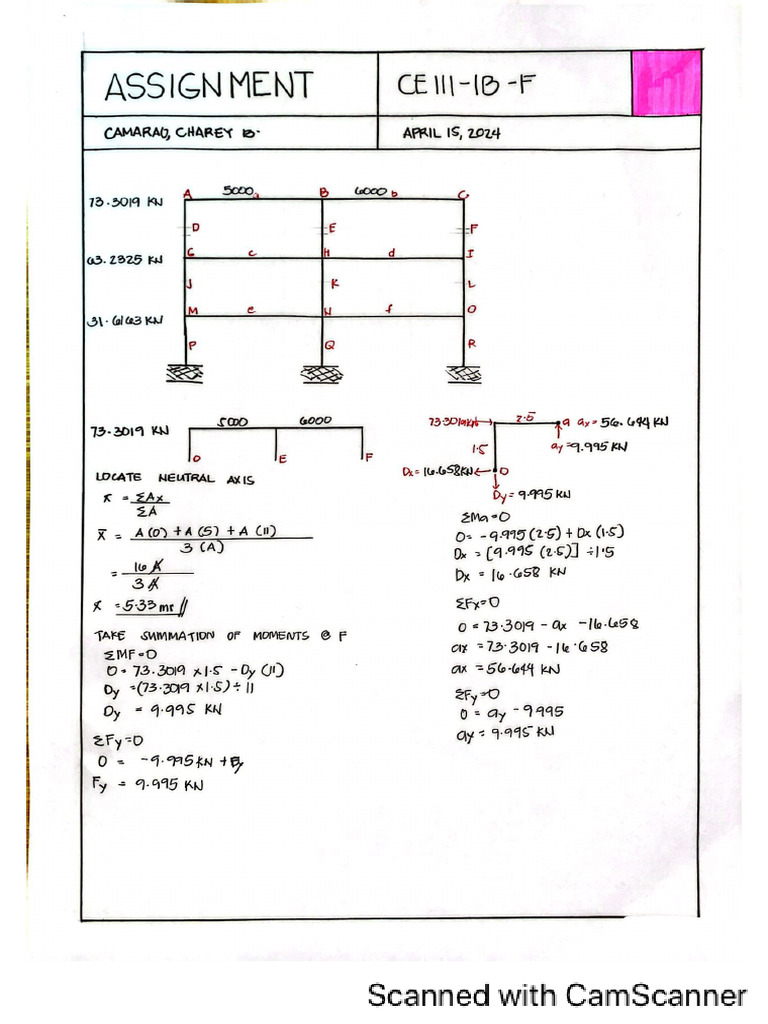 ASSIGNMENT
CE 111-1B-F
CAMARAO, CHAREY B.
APRIL 15, 2024
A 5000 a B 6000 b C
73.3019 KN
D E F
63.2325 KN
G c H d I
J K L
31.6163 KN
M e N f O
P Q R
73.3019 KN
5000 6000
D E F
LOCATE NEUTRAL AXIS
x̄ = ΣAx / ΣA
x̄ = A(0) + A(5) + A(11) / 3(A)
= 16A / 3A
x̄ = 5.33 mr //
TAKE SUMMATION OF MOMENTS @ F
ΣMF=0
0 = 73.3019 x 1.5 - Dy (11)
Dy = (73.3019 x 1.5) ÷ 11
Dy = 9.995 KN
ΣFy=0
0 = -9.995KN + Fy
Fy = 9.995 KN
73.3019KN 2.5 a ax= 56.644 KN
1.5 ay=9.995 KN
Dx=16.658KN D
Dy= 9.995 KN
ΣMa=0
0= -9.995(2.5) + Dx(1.5)
Dx = [9.995 (2.5)] ÷ 1.5
Dx = 16.658 KN
ΣFx=0
0 = 73.3019 - ax - 16.658
ax = 73.3019 - 16.658
ax = 56.644 KN
ΣFy=0
0 = ay - 9995
ay = 9.995 KN
Scanned with CamScanner